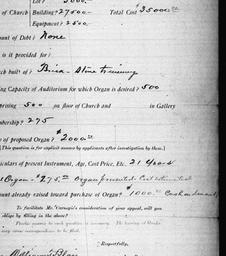 Lot? 5000.
of Church Building? 27500- Total Cost $35000.00
Equipment? 2500.
ount of Debt? None
is it provided for?
rch built of? Brick - Stone trimming
ing Capacity of Auditorium for which Organ is desired? 500
prising 500 on floor of Church and in Gallery
mbership? 275
e of proposed Organ? $2000.00
[This question is for explicit answer by applicants after investigation by them.]
iculars of present Instrument, Age, Cost Price, Etc. 21 years
Organ - $275.00 Organ presented
ount already raised toward purchase of Organ? $1000.00 Cash on hand
To facilitate Mr. Carnegie's consideration of your appeal, will you
oblige by filling in the above?
Respectfully,